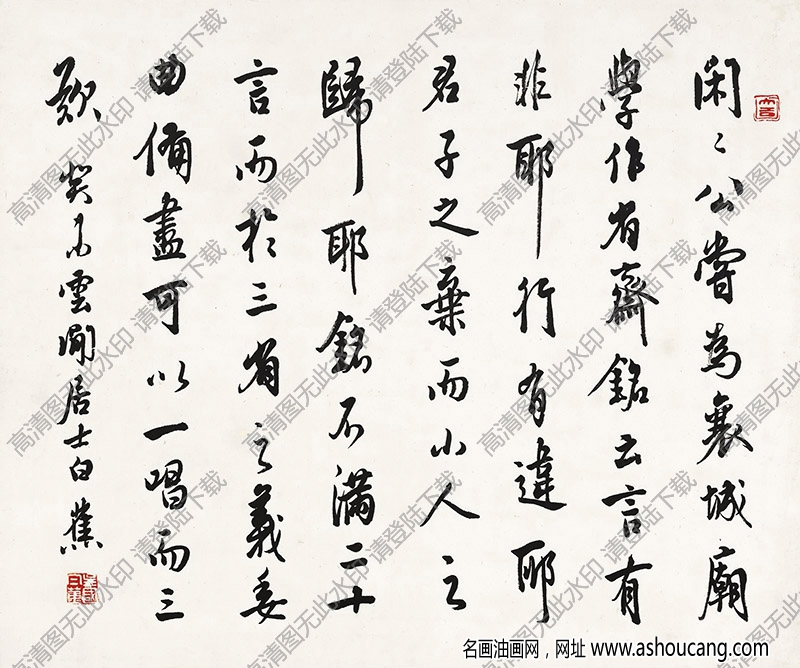 閑〻公嘗為襄城廟
學作省齋銘云言有
非耶行有違耶
君子之棄而小人之
歸耶銘不滿二十
言而於三省之義委
曲備盡可以一唱而三
歎 癸未雲間居士白蕉
高清图无此水印 请登陆下载
名画油画网，网址 www.ashoucang.com